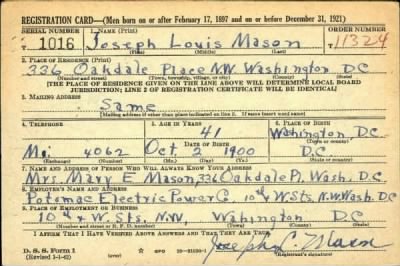 REGISTRATION CARD—(Men born on or after February 17, 1897 and on or before December 31, 1921)
SERIAL NUMBER 1. NAME (Print) ORDER NUMBER
1016 Joseph Louis Mason 11324
2. PLACE OF RESIDENCE (Print)
336 Oakdale Place N.W. Washington D.C
(Number and street) (Town, township, village, or city) (County) (State)
[THE PLACE OF RESIDENCE GIVEN ON THE LINE ABOVE WILL DETERMINE LOCAL BOARD
JURISDICTION; LINE 2 OF REGISTRATION CERTIFICATE WILL BE IDENTICAL]
3. MAILING ADDRESS
Same
[Mailing address if other than place indicated on line 2. If same insert word same]
4. TELEPHONE 5. AGE IN YEARS 6. PLACE OF BIRTH
41 Washington D.C
DATE OF BIRTH (Town or county)
Mi. 4062 Oct. 2 1900 D.C
(Exchange) (Number) (Mo.) (Day) (Yr.) (State or country)
7. NAME AND ADDRESS OF PERSON WHO WILL ALWAYS KNOW YOUR ADDRESS
Mrs. Mary E Mason, 336 Oakdale Pl, Wash. D.C
8. EMPLOYER'S NAME AND ADDRESS
Potomac Electric Power C 10th & W Sts. N.W. Wash. D.C
9. PLACE OF EMPLOYMENT OR BUSINESS
10th & W. Sts. N.W, Wahington D.C
(Number and street or R. F. D. number) (Town) (County) (State)
I AFFIRM THAT I HAVE VERIFIED ABOVE ANSWERS AND THAT THEY ARE TRUE.
D. S. S. Form 1
(Revised 1-1-42) (over) Joseph L. Mason
(Registrant's signature)